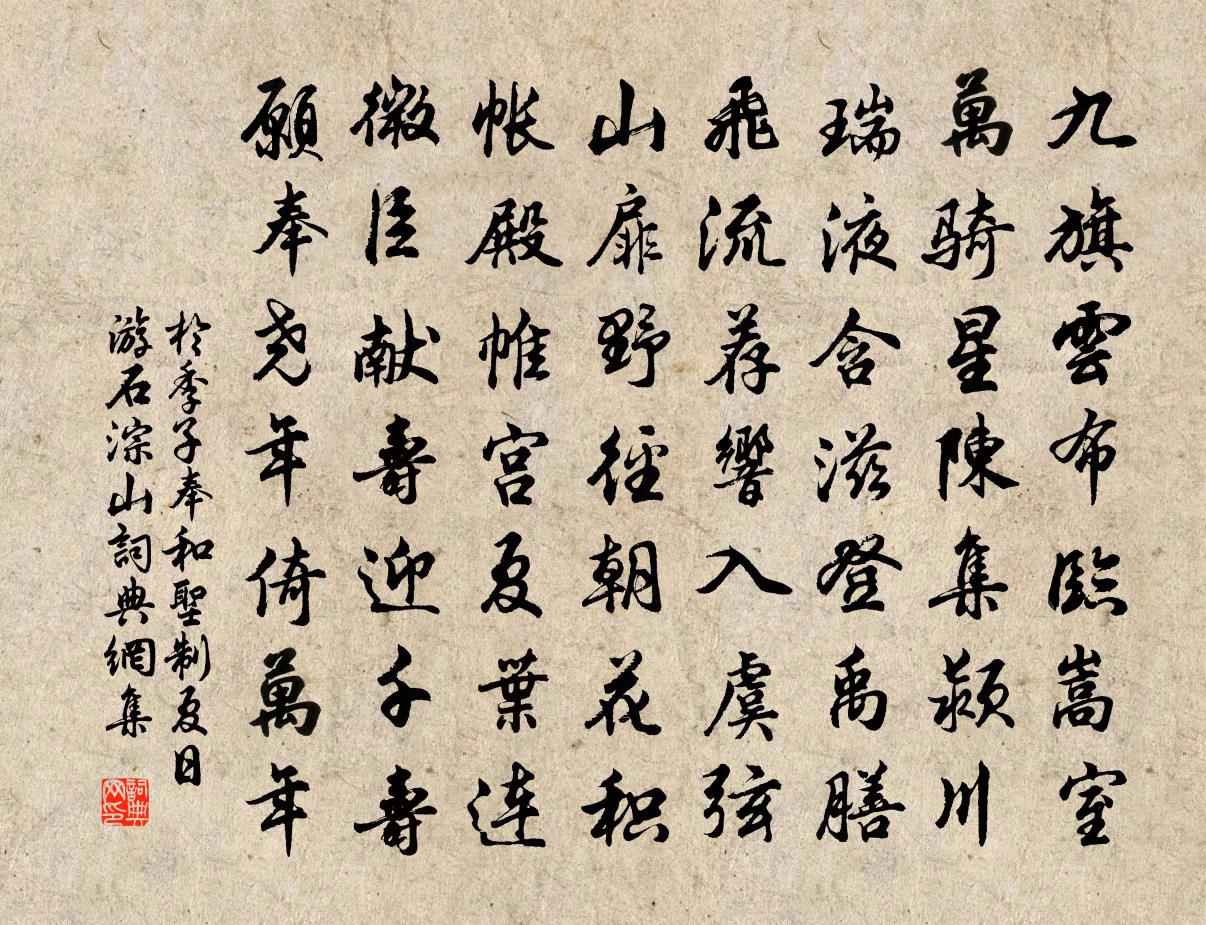 九旗雲布臨嵩室
萬骑星陳集颍川
瑞液含滋登禹膳
飛流荐響入虞弦
山扉野徑朝花积
帐殿帷宫夏葉连
微臣献壽迎千壽
願奉尧年倚萬年
於季子奉和聖制夏日
游石淙山詞典網集
詞典网印